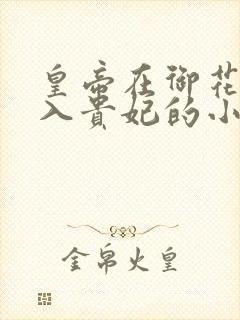 皇帝在御花
入贵妃的小
金帛火皇